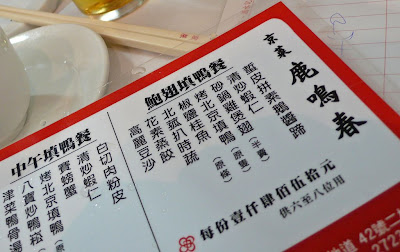 京菜
鹿鳴春
鮑翅填鴨餐
蜇皮拼素鵝醬蹄
清炒蝦仁（半賣）
砂鍋雞煲翅
烤北京填鴨（原隻）
椒鹽桂魚（原條）
北菰扒時蔬
花素蒸餃
高麗豆沙
每份壹仟肆佰伍拾元
供六至八位用
中午填鴨餐
白切肉粉皮
清炒蝦仁
賽螃蟹
烤北京填鴨
八寶炒鴨崧
津菜鴨骨湯
42號二